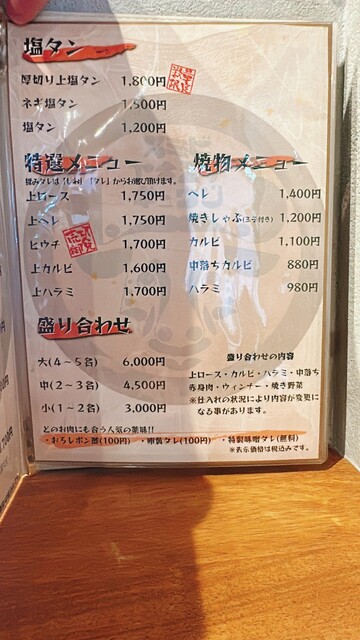 塩タン
厚切り上塩タン 1,800円
ネギ塩タン 1,500円
塩タン 1,200円
特選メニュー
揉みダレは「しお」「タレ」からお選び頂けます。
上ロース 1,750円
上ヘレ 1,750円
ヒウチ 1,700円
上カルビ 1,600円
上ハラミ 1,700円
焼物メニュー
ヘレ 1,400円
焼きしゃぶ(3枚付き) 1,200円
カルビ 1,100円
中落ちカルビ 880円
ハラミ 980円
盛り合わせ
大(4~5名) 6,000円
中(2~3名) 4,500円
小(1~2名) 3,000円
盛り合わせの内容
上ロース・カルビ・ハラミ・中落ち
赤身肉・ウィンナー・焼き野菜
※仕入れの状況により内容が変更に
なる事があります。
どのお肉にも合う人気の薬味!!
・おろしポン酢(100円) ・卵黄タレ(100円) ・特製味噌タレ(無料)
※表示価格は税込みです。